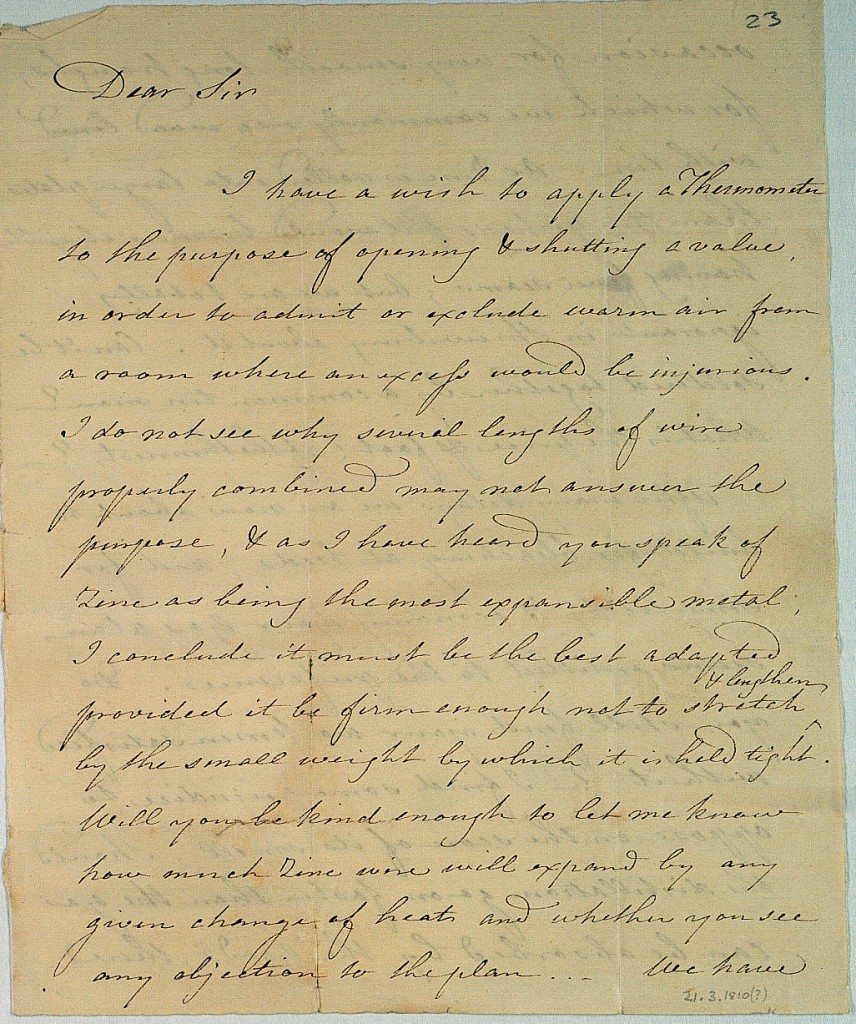 23
Dear Sir
I have a wish to apply a Thermometer
to the purpose of opening & shutting a valve,
in order to admit or exclude warm air from
a room where an excess would be injurious.
I do not see why several lengths of wire
properly combined may not answer the
purpose, & as I have heard you speak of
Zinc as being the most expansible metal,
I conclude it must be the best adapted
& lengthen
provided it be firm enough not to stretch ^
by the small weight by which it is held tight.
Will you be kind enough to let me know
how much Zinc wire will expand by any
given change of heat and whether you see
any objection to the plan... We have
21.3.1810(?)